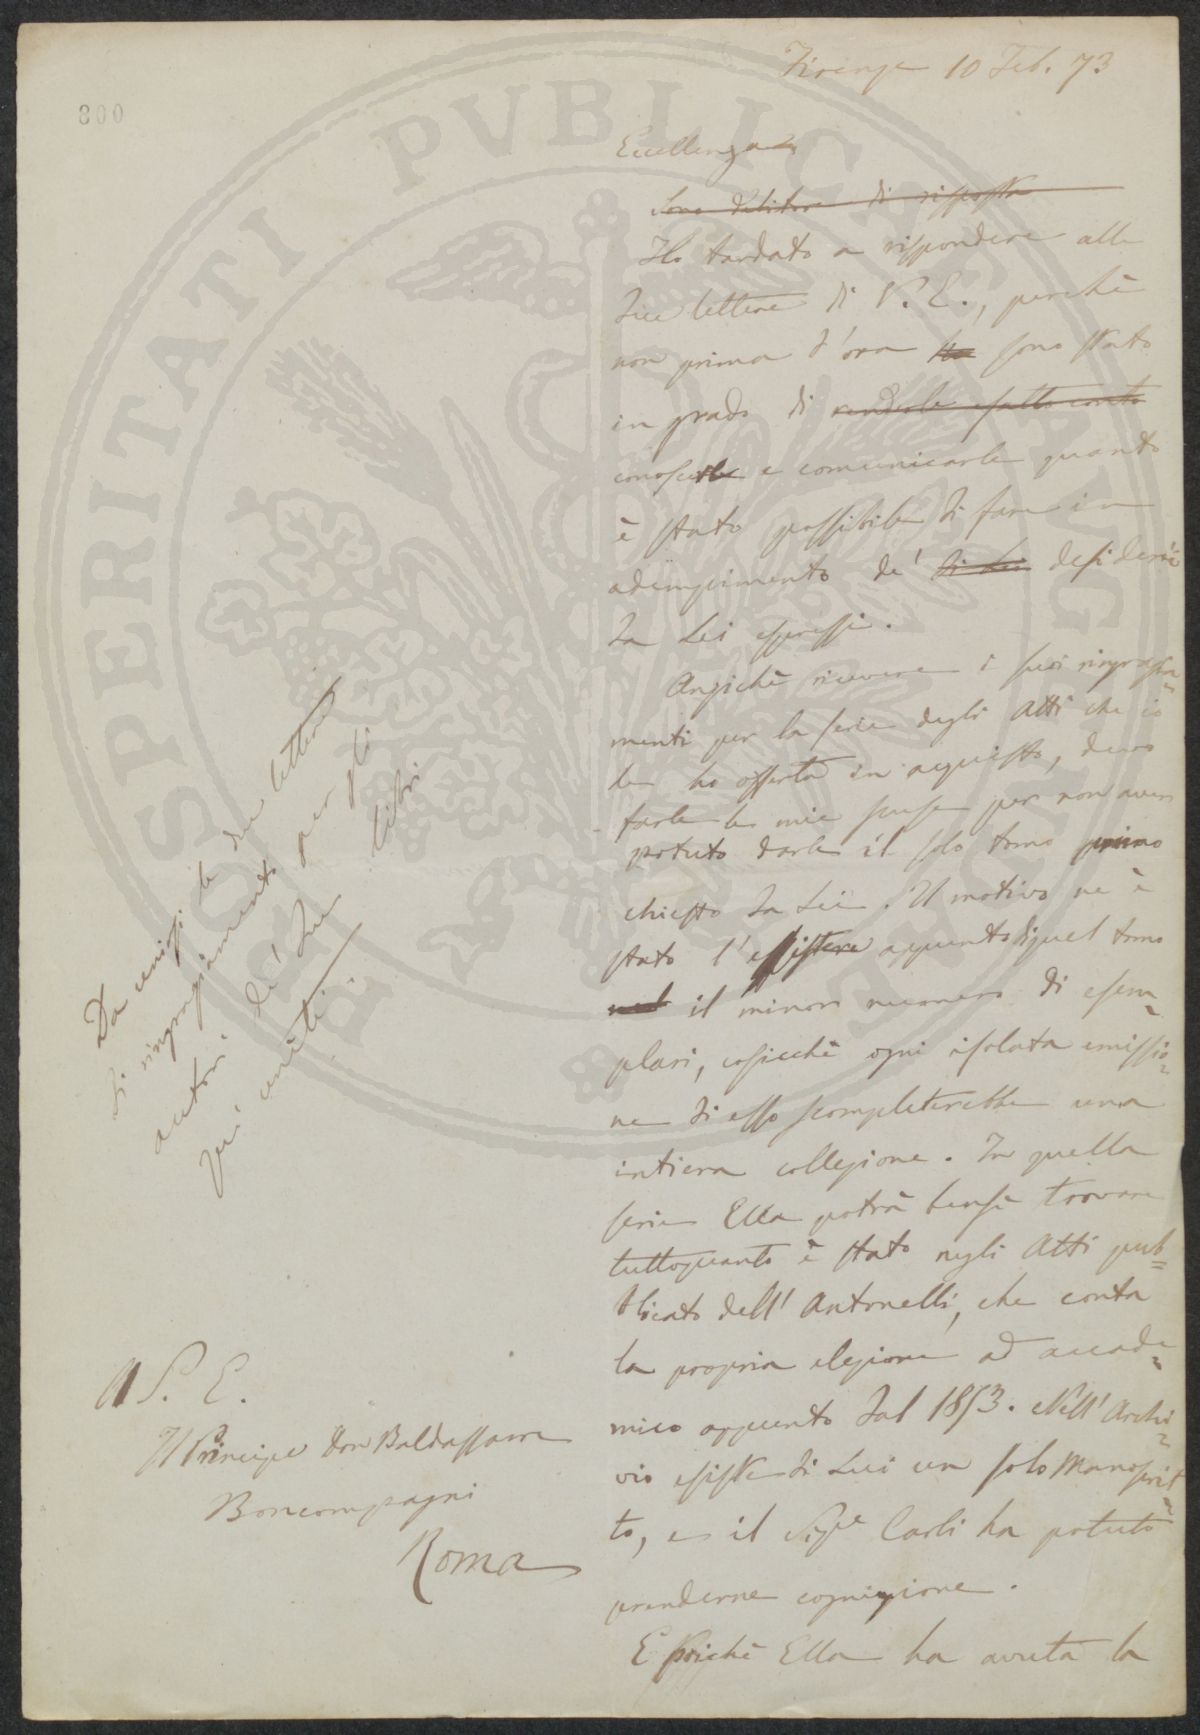 Firenze 10 Feb. 73
800
Eccellenza
Sono debitore di risposta
Ho tardato a rispondere alle
due lettere di V. E., perchè
non prima d'ora ho sono stato
in grado di renderle esatto conto
conoscere e comunicarle quanto
è stato possibile di fare in
adempimento de' di Lei desiderii
da Lei espressi.
Anzichè ricevere i suoi ringrazia=
menti per la serie degli Atti che io
le ho offerta in acquisto, devo
farle le mie scuse per non aver
potuto darle il solo tomo primo
chiesto da Lei. Il motivo ne è
stato l'esistere appunto di quel tomo
il minor numero di esem=
plari, cosicchè ogni isolata emissio=
ne di esso scompleterebbe una
intiera collezione. In quella
serie Ella potrà bensì trovare
tuttoquanto è stato negli Atti pub=
blicato dell'Antonelli, che conta
la propria elezione ad accade=
mico appunto dal 1853. Nell'Archi=
vio esiste di Lui un solo manoscrit=
to, e il Sig.e Carli ha potuto
prenderne cognizione.
E poichè Ella ha avuta la
Da unirsi le due lettere
di ringraziamento per gli
autori de' due libri
qui uniti.
A S. E.
Il Principe Don Baldassarre
Boncompagni
Roma
PROSPERITATI PVBLICAE AVGENDAE